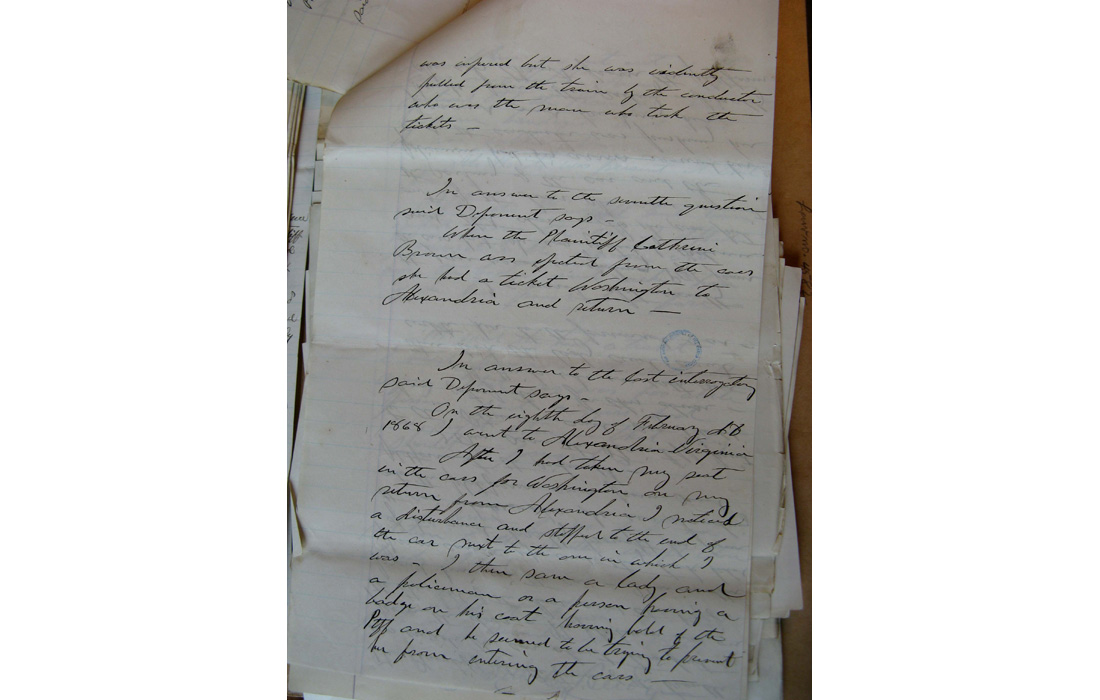 was injured but she was evidently
pulled from the train by the conductor
who was the man who took the
tickets —
In answer to the seventh question
said Deponent says —
When the Plaintiff Catharine
Brown was ejected from the cars
she had a ticket Washington to
Alexandria and return —
In answer to the last interrogatory
said Deponent says —
On the eighth day of February AD
1868 I went to Alexandria Virginia
After I had taken my seat
in the cars for Washington on my
return from Alexandria I noticed
a disturbance and stepped to the end of
the car next to the one in which I
was — I then saw a lady and
a policeman or a person having a
badge on his coat having hold of the
Pltff and he seemed to be trying to prevent
her from entering the cars —